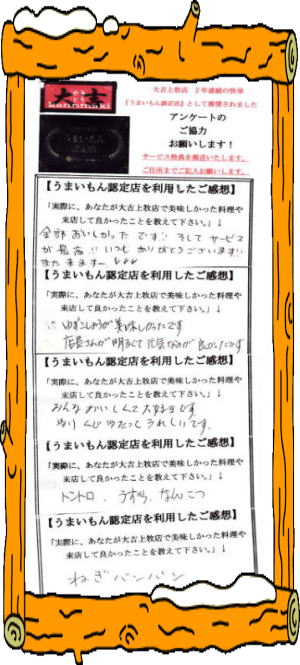 やきとり
大吉
kanmaki
うまいもん
認定店
大吉上牧店 2年連続の快挙
『うまいもん認定店』として推奨されました
アンケートの
ご協力
お願いします!
サービス特典を郵送いたします。
ご住所までご記入お願いします。
【うまいもん認定店を利用したご感想】
「実際に、あなたが大吉上牧店で美味しかった料理や
来店して良かったことを教えて下さい。」↓
全部おいしかったです!! そしてサービス
が最高!! いつもありがとうございます!!
また来ますー
【うまいもん認定店を利用したご感想】
「実際に、あなたが大吉上牧店で美味しかった料理や
来店して良かったことを教えて下さい。」↓
ゆずこしょうが美味しかったです
店長さんが明るくて元気なのが良かったです
【うまいもん認定店を利用したご感想】
「実際に、あなたが大吉上牧店で美味しかった料理や
来店して良かったことを教えて下さい。」↓
みんなおいしくて大好きです
くじ当たってうれしいです。
【うまいもん認定店を利用したご感想】
「実際に、あなたが大吉上牧店で美味しかった料理や
来店して良かったことを教えて下さい。」↓
トントロ、うずら、なんこつ
【うまいもん認定店を利用したご感想】
「実際に、あなたが大吉上牧店で美味しかった料理や
来店して良かったことを教えて下さい。」↓
ねぎバンバン